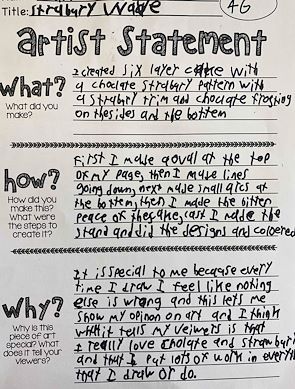 Title: Strabury Wave
AG
artist Statement
what?
What did you
make?
I created six layer cake with
a choclate Strabury pattern with
a strabury trim and choclate frosting
on thesides and the bottem
how?
How did you
make this?
What were
the steps to
create it?
First I made a oval at the top
of my page, then I made lines
going down, next made small arcs at
the bottem, then I made the bttem
peace of the cake, last I made the
stand and did the designs and coloered
Why?
Why is this
piece of art
special? Wt?
does it tell your
viewers?
It is special to me because every
time I draw I feel like nothing
else is wrong and this lets me
show my opinon on art and I think
what it tells my veiwers is that
I really love cholate and strawburi
and that I put lots of work in everyth
that I draw or do.